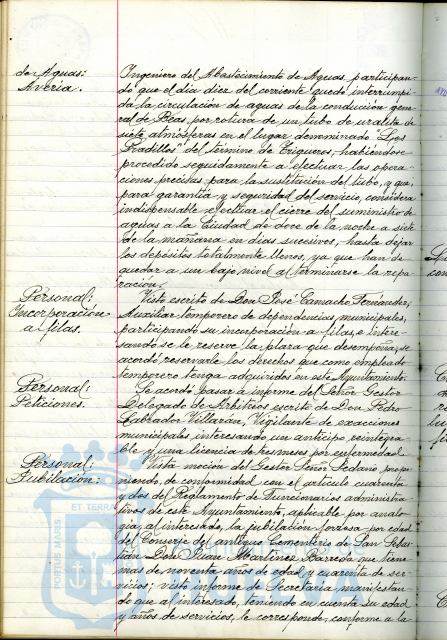 de Aguas:
Avería.
Ingeniero del Abastecimiento de Aguas, participan-
do que el día diez del corriente quedó interrumpi-
da la circulación de aguas de la conducción gene-
ral de Beas, por rotura de un tubo de uralita de
siete atmósferas en el lugar denominado "Los
Pradillos" del término de Trigueros, habiéndose
procedido seguidamente a efectuar las opera-
ciones precisas para la sustitución del tubo, y que
para garantía y seguridad del servicio, considera
indispensable efectuar el cierre del suministro de
aguas a la Ciudad de doce de la noche a siete
de la mañana en días sucesivos, hasta dejar
los depósitos totalmente llenos, ya que han de
quedar a un bajo nivel al terminarse la repa-
ración.
Personal:
Incorporación
a filas.
Visto escrito de Don José Camacho Fernández,
Auxiliar temporero de dependencias municipales,
participando su incorporación a filas, e intere-
sando se le reserve la plaza que desempeña, se
acordó reservarle los derechos que como empleado
temporero tenga adquiridos en este Ayuntamiento.
Personal:
Peticiones.
Se acordó pasar a informe del Señor Gestor
Delegado de Arbitrios escrito de Don Pedro
Labrador Villarán, Vigilante de exacciones
municipales, interesando un anticipo reintegra-
ble y una licencia de tres meses por enfermedad.
Personal:
Jubilación:
Vista moción del Gestor Señor Sedano, propo-
niendo, de conformidad con el artículo cuarenta
y dos del Reglamento de Funcionarios administra-
tivos de este Ayuntamiento, aplicable por analo-
gía al interesado, la jubilación forzosa por edad
del Conserje del antiguo Cementerio de San Sebas-
tián Don Juan Martínez Barreda que tiene
mas de noventa años de edad y cuarenta de ser-
vicios; visto informe de Secretaría manifestan-
do que al interesado, teniendo en cuenta su edad
y años de servicios, le corresponde, conforme a la
PORTUS MARIS ET TERRAE